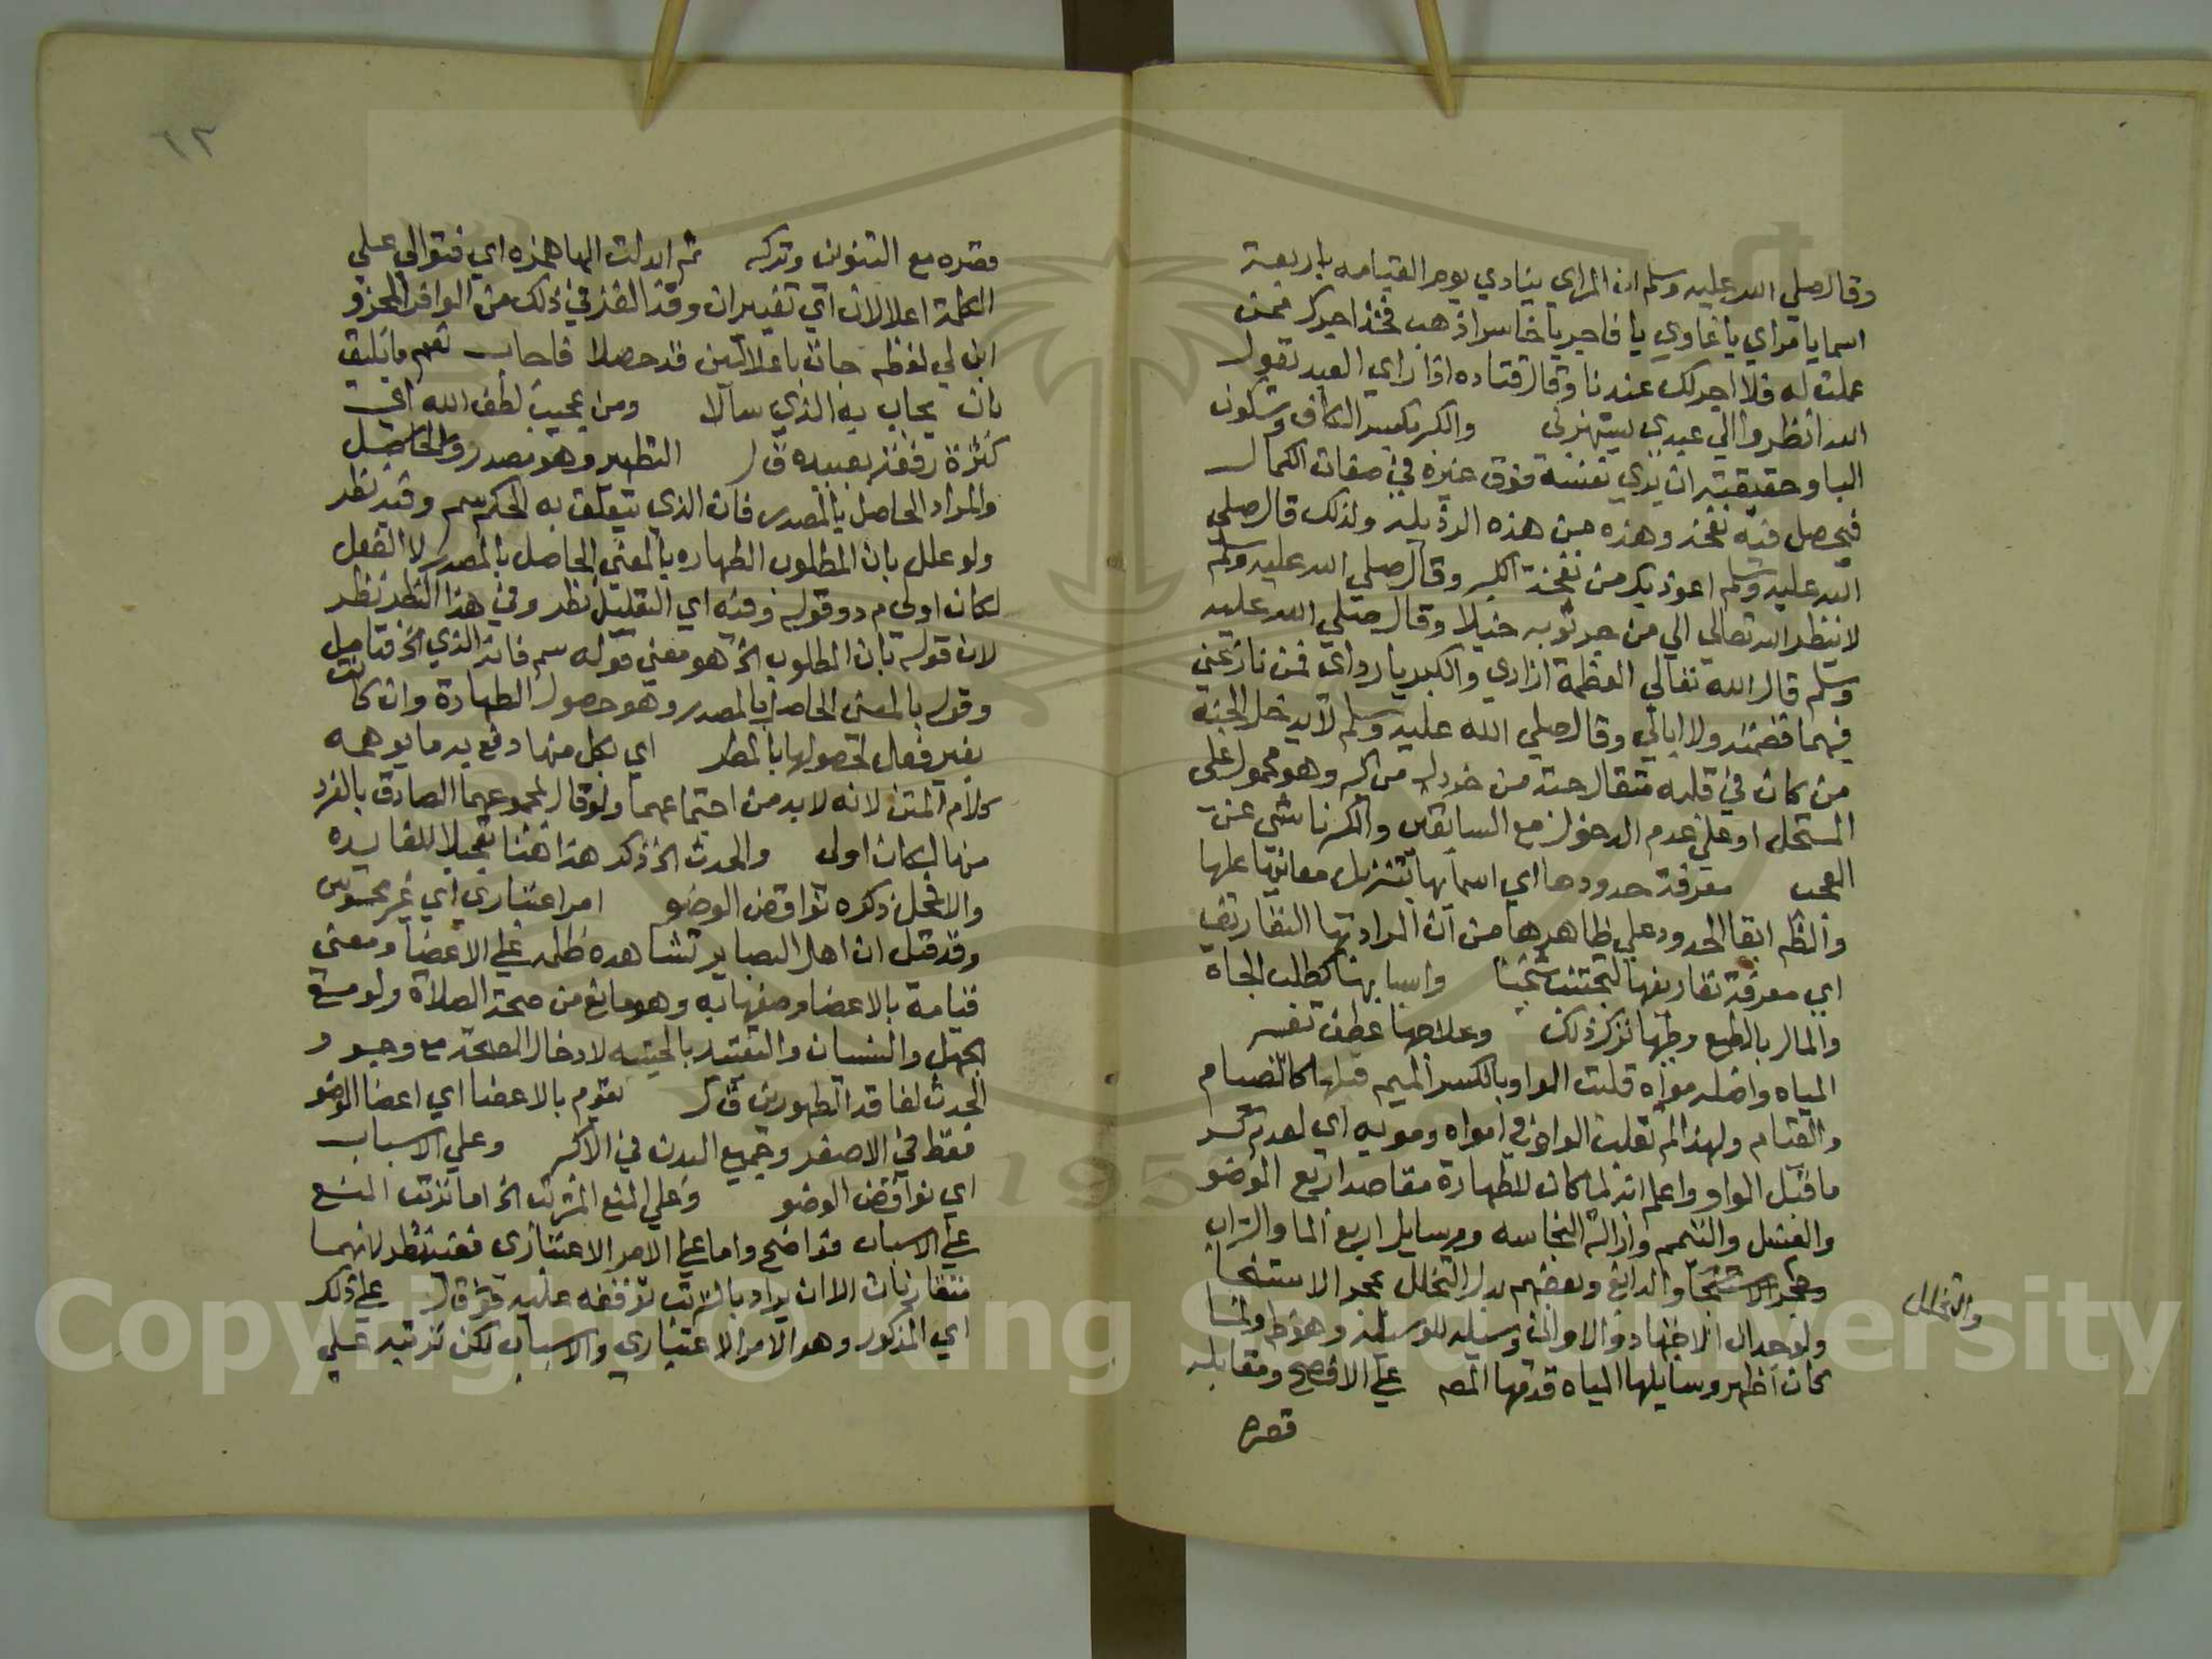 وقال صلي الله عليه وسلم ان المراي ينادي يوم القيامه باربعة
اسما يا مراي يا غاوي يا فاجر يا خاسر اذهب فخذ اجرك ممن
عملت له فلا اجر لك عندنا وقال قتاده اذا راي العبد يقول
الله انظروا الي عبدي يستهزئ والكبر بكسر الكاف وسكون
البا وحقيقته ان يري نفسه فوق غيره في صفات الكمال
فيحصل فيه نفخة وهذه من هذه الرذيلة ولذلك قال صلي
الله عليه وسلم اعوذ بك من نفخة الكبر وقال صلي الله عليه وسلم
لا ينظر الله تعالي الي من جر ثوبه خيلا وقال صلي الله عليه
وسلم قال الله تعالي العظمة ازاري والكبريا رداي فمن نازعني
فيهما قصمته ولا ابالي وقال صلي الله عليه وسلم لا يدخل الجنة
من كان في قلبه مثقال حبة من خردل من كبر وهو محمول علي
المستحل او علي عدم الدخول مع السابقين والكبر ناشي عن
العجب معرفة حدودها اي اسمائها بتنزيل معانيها عليها
والظم ابقا الحدود علي ظاهرها من ان المراد بها التعاريف
اي معرفة تعاريفها لتجتنب شيخنا واسبابها كطلب الجاه
والمال بالطبع وطبها تركز ذلك وعلاجها عطف تفسير
المياه واصله مواه قلبت الواو يا لكسر الميم قبلها كالصيام
والقيام ولهذا لم تقلب الواو في امواه ومويه اي لعدم كسر
ما قبل الواو واعلم انه لما كان للطهارة مقاصد اربع الوضو
والغسل والتيمم وازالة النجاسه ووسايل اربع الما والتراب
وحجر الاستنجا والدابغ وبعضهم بدل التخلل بحجر الاستنجا
والتخلل
ولوحد ان الاجتهاد والاواني وسيله للوسيلة وهوظ ولما
كان اظهر وسايلها المياه قدمها المص علي الافصح ومقابله
قصره
٦٣
قصره مع التنوين وتركه ثم ابدلت الها همزه اي فتوالي علي
الكلمة اعلالان اي تغييران وقد الغز في ذلك من الوافر المجزو
ابن لي لفظه جات باعلالين قد حصلا فاجاب نعم ما يليق
بان يجاب به الذي سالا ومن عجيب لطف الله اي
كثرة رفقه بعبيده ق ل التطهير وهو مصدر والحاصل
والمراد الحاصل بالمصدر فان الذي يتعلق به الحكم سم وفيه نظر
ولو علل بان المطلوب الطهاره بالمعني الحاصل بالمصدر لا الفعل
لكان اولي م د وقوله وفيه اي التعليل نظر وفي هذا النظر نظر
لان قوله بان المطلوب الخ هو معني قوله سم فان الذي الخ فتامل
وقوله بالمعني الحاصل بالمصدر وهو حصول الطهارة وان كانت
بغير فعل لحصولها بالمطر اي بكل منها دفع به ما يوهمه
كلام المتن لانه لا بد من اجتماعهما ولو قال لمجموعهما الصادق بالفرد
منها لكان اولي والحدث الخ ذكر هذا هنا تعجيلا للفايده
والا فمحل ذكره نواقض الوضو امر اعتباري اي غير محسوس
وقد قيل ان اهل البصاير تشاهده ظلمه علي الاعضا ومعني
قيامه بالاعضا وصفها به وهو مانع من صحة الصلاة ولو مع
الجهل والنسيان والتقييد بالحيثيه لادخال الصحة مع وجود
الحدث لفاقد الطهورين ق ل يقوم بالاعضا اي اعضا الوضو
فقط في الاصغر وجميع البدن في الاكبر وعلي الاسباب
اي نواقض الوضو وعلي المنع المترتب الخ اما ترتب المنع
علي الاسباب فواضح واما علي الامر الاعتباري ففيه نظر لانهما
متقارنان الا ان يراد بالترتب توقفه عليه ق ل علي ذلك
اي المذكور وهو الامر الاعتباري والاسباب لكن ترتبه علي
Copyright © King Saud University
1957